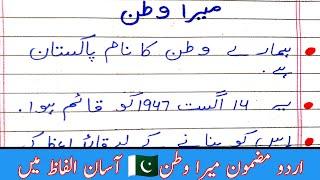 میرا وطن
ہمارے وطن کا نام پاکستان
ہے.
یہ 14 اگست 1947 کو قائم ہوا.
اس کو بنانے کے لئے قائد اعظم
اردو مضمون میرا وطن 🇵🇰 آسان الفاظ میں